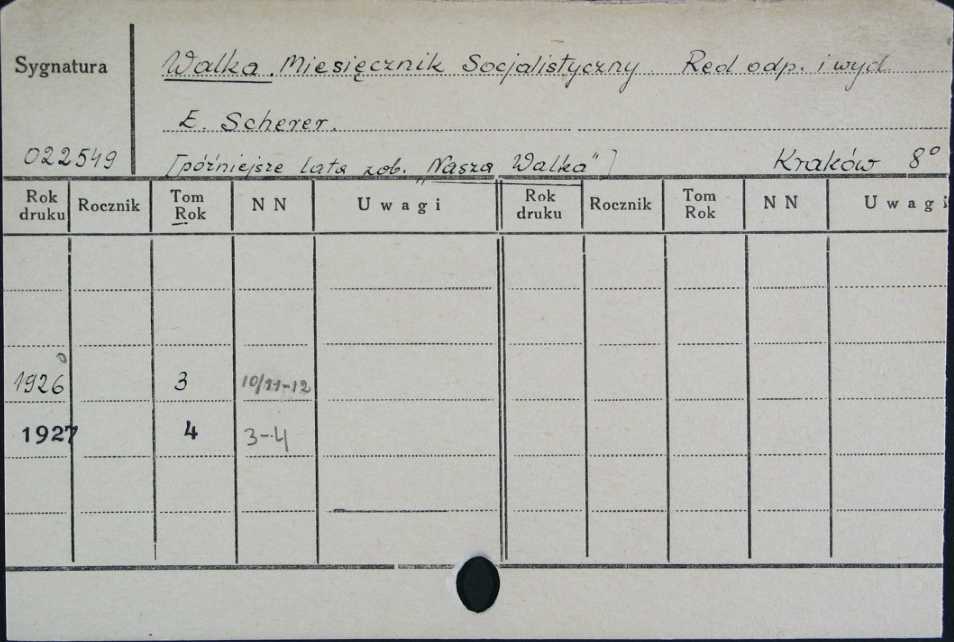 Sygnatura Walka. Miesięcznik Socjalistyczny. Red odp. i wyd.
E. Scherer.
022549 [późniejsze lata zob. „Nasza Walka"] Kraków 8°
Rok druku Rocznik Tom Rok N N Uwagi Rok druku Rocznik Tom Rok N N Uwagi
1926 3 10/11-12
1927 4 3-4